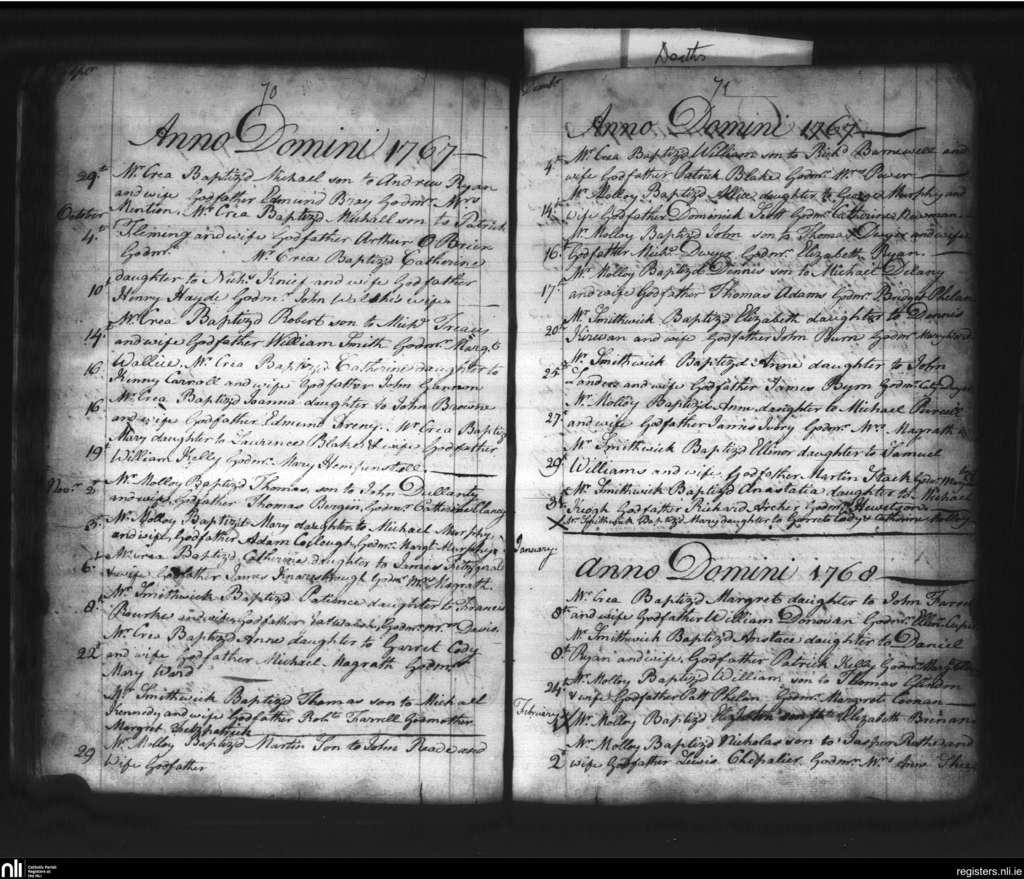 Deaths
70
Anno Domini 1767
29th Mr. Crea Baptiz'd Michael son to Andrew Ryan
and wife Godfather Edmund Bray Godmr. Mrs
October
Mr. Crea Baptiz'd Michall son to Patrick
4th Fleming and wife Godfather Arthur O Brien
Godmr. Mr. Crea Baptiz'd Catherine
daughter to Nichs. and wife Godfather
10th Henry Hayde Godmr. John wife
Mr. Crea Baptiz'd Robert son to Michl. Treacy
14th and wife Godfather William Smith Godmr. Margt.
Wallice, Mr. Crea Baptiz'd Catherine daughter to
16 Kenny Carroll and wife Godfather John Glannon
Mr. Crea Baptiz'd Joanna daughter to John Browne
16 and wife Godfather Edmund Mr. Crea Baptiz'd
Mary daughter to Laurence Blake & wife Godfather
19th William Kelly Godmr. Mary
Novr. 2d Mr. Molloy Baptiz'd Thomas, son to John Dullanty
and wife Godfather Thomas Bergin, Godmr. Catherine Clancy
3 Mr. Molloy Baptiz'd Mary daughter to Michael Murphy
and wife, Godfather Adam Godmr. Margt. Murphy
6th Mr. Crea Baptiz'd Catherine daughter to James Fitzgerald
& wife Godfather James Godmr. Mrs. Magrath
Mr. Smithwick Baptiz'd Patience daughter to Francis
8 Bourke and wife Godfather Walsh, Godmr. Davis.
Mr. Crea Baptiz'd Anne daughter to Garret Cody
22 and wife Godfather Michael Magrath Godmr.
Mary Ward
Mr. Smithwick Baptiz'd Thomas son to Michael
Kennedy and wife Godfather Robt. Farrell Godmother
Margret Fitzpatrick
29 Mr. Molloy Baptiz'd Martin Son to John Reade and
Wife Godfather
71
Anno Domini 1767
Mr. Crea Baptiz'd William son to Richd. Barnewell and
4th wife Godfather Patrick Blake Godmr. Mrs. Power
Mr. Molloy Baptiz'd Allice daughter to George Murphy and
14th wife Godfather Dominick Scott Godmr. Catherine Newman
Mr. Molloy Baptiz'd John son to Thomas Dwyer and wife
16th Godfather Michl. Dwyer Godmr. Elizabeth Ryan
Mr. Molloy Baptiz'd Dennis son to Michael Delany
17th and wife Godfather Thomas Adams Godmr. Bridget Phelan
Mr. Smithwick Baptiz'd Elizabeth daughter to Dennis
20th Kirwan and wife Godfather John Burn Godmr.
Mr. Smithwick Baptiz'd Anne daughter to John
25th Landers and wife Godfather James Byrn Godmr.
Mr. Molloy Baptiz'd Anne daughter to Michael Purcell
27th and wife Godfather James Ivory Godmr. Mrs. Magrath
Mr. Smithwick Baptiz'd Ellinor daughter to Samuel
29th Williams and wife Godfather Martin Stack Godmr.
Mr. Smithwick Baptiz'd Anastatia daughter to Michael
Keogh Godfather Richard Archer Godmr.
X Mr. Smithwick Baptiz'd Mary daughter to Garret Cody
January
Anno Domini 1768
Mr. Crea Baptiz'd Margret daughter to John
8th and wife Godfather William Donovan Godmr.
Mr. Smithwick Baptiz'd Anstace daughter to Daniel
8th Ryan and wife, Godfather Patrick Kelly Godmr.
Mr. Molloy Baptiz'd William son to Thomas
24th & wife Godfather Patt Phelan Godmr. Margret Coonan
February
Mr. Molloy Baptiz'd Elizabeth Brenan
Mr. Molloy Baptiz'd Nicholas son to Jasper Rothe and
2d wife Godfather Lewis Chevalier Godmr. Mrs. Anne Shee
nli
Catholic Parish
Registers at
the NLI
registers.nli.ie